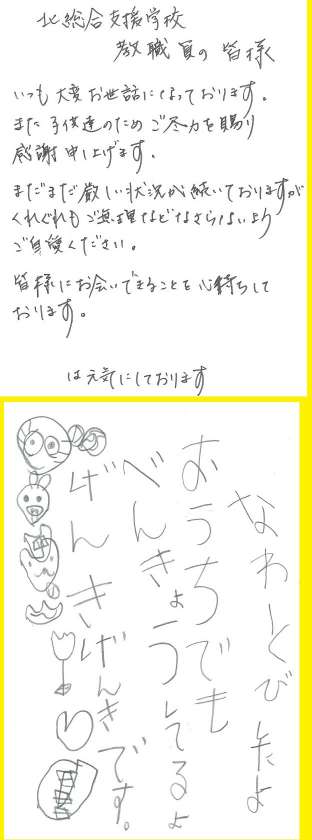 北総合支援学校
教職員の皆様
いつも大変お世話になっております。
また子供達のためご尽力を賜り
感謝申し上げます。
まだまだ厳しい状況が続いておりますが
くれぐれもご無理などなさらないよう
ご自愛ください。
皆様にお会いできることを心待ちして
おります。
は元気にしております
なわとびしたよ
おうちでも
べんきょうしてるよ
げんきげんきです。